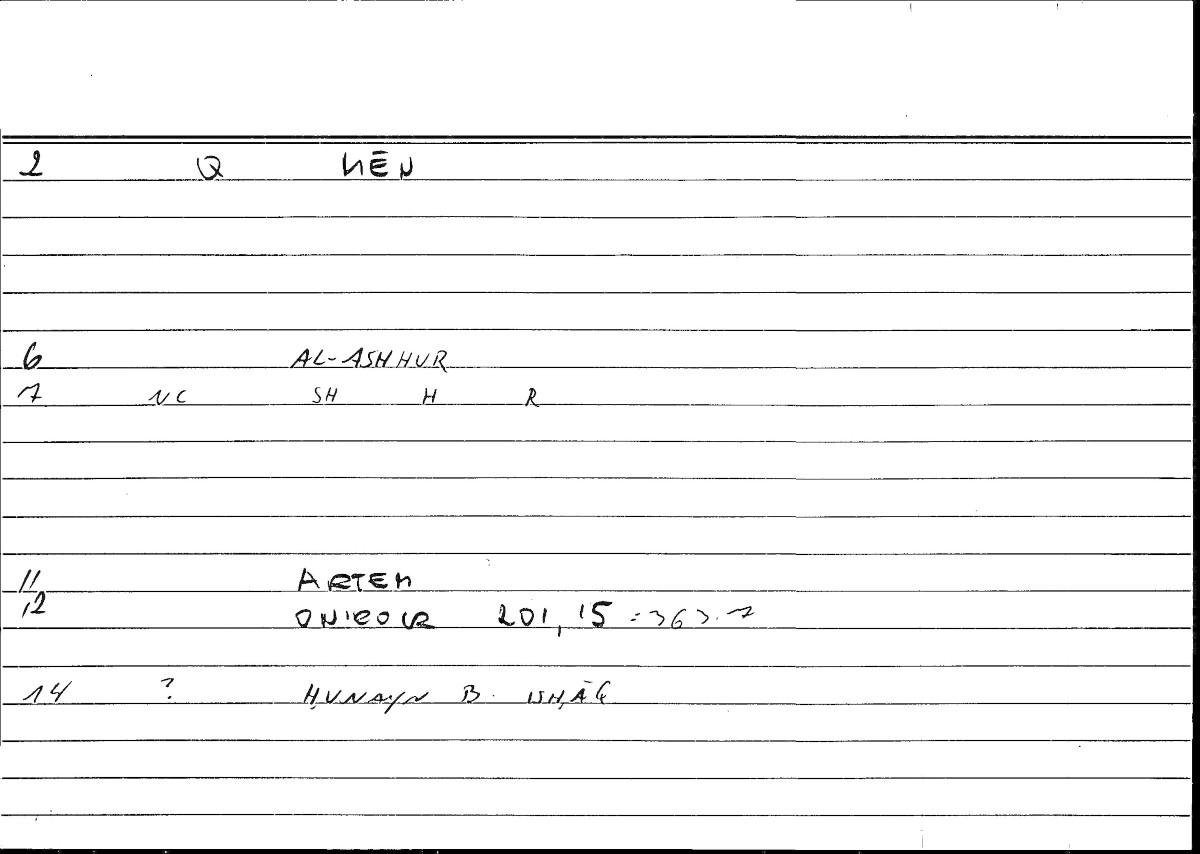 2 Q MĒN
6 AL-ASHHUR
7 NC SH H R
11 ARTEM
12 ONIROCR 201, 15 = 363.7
14 ? ḤUNAYN B. ISḤĀQ